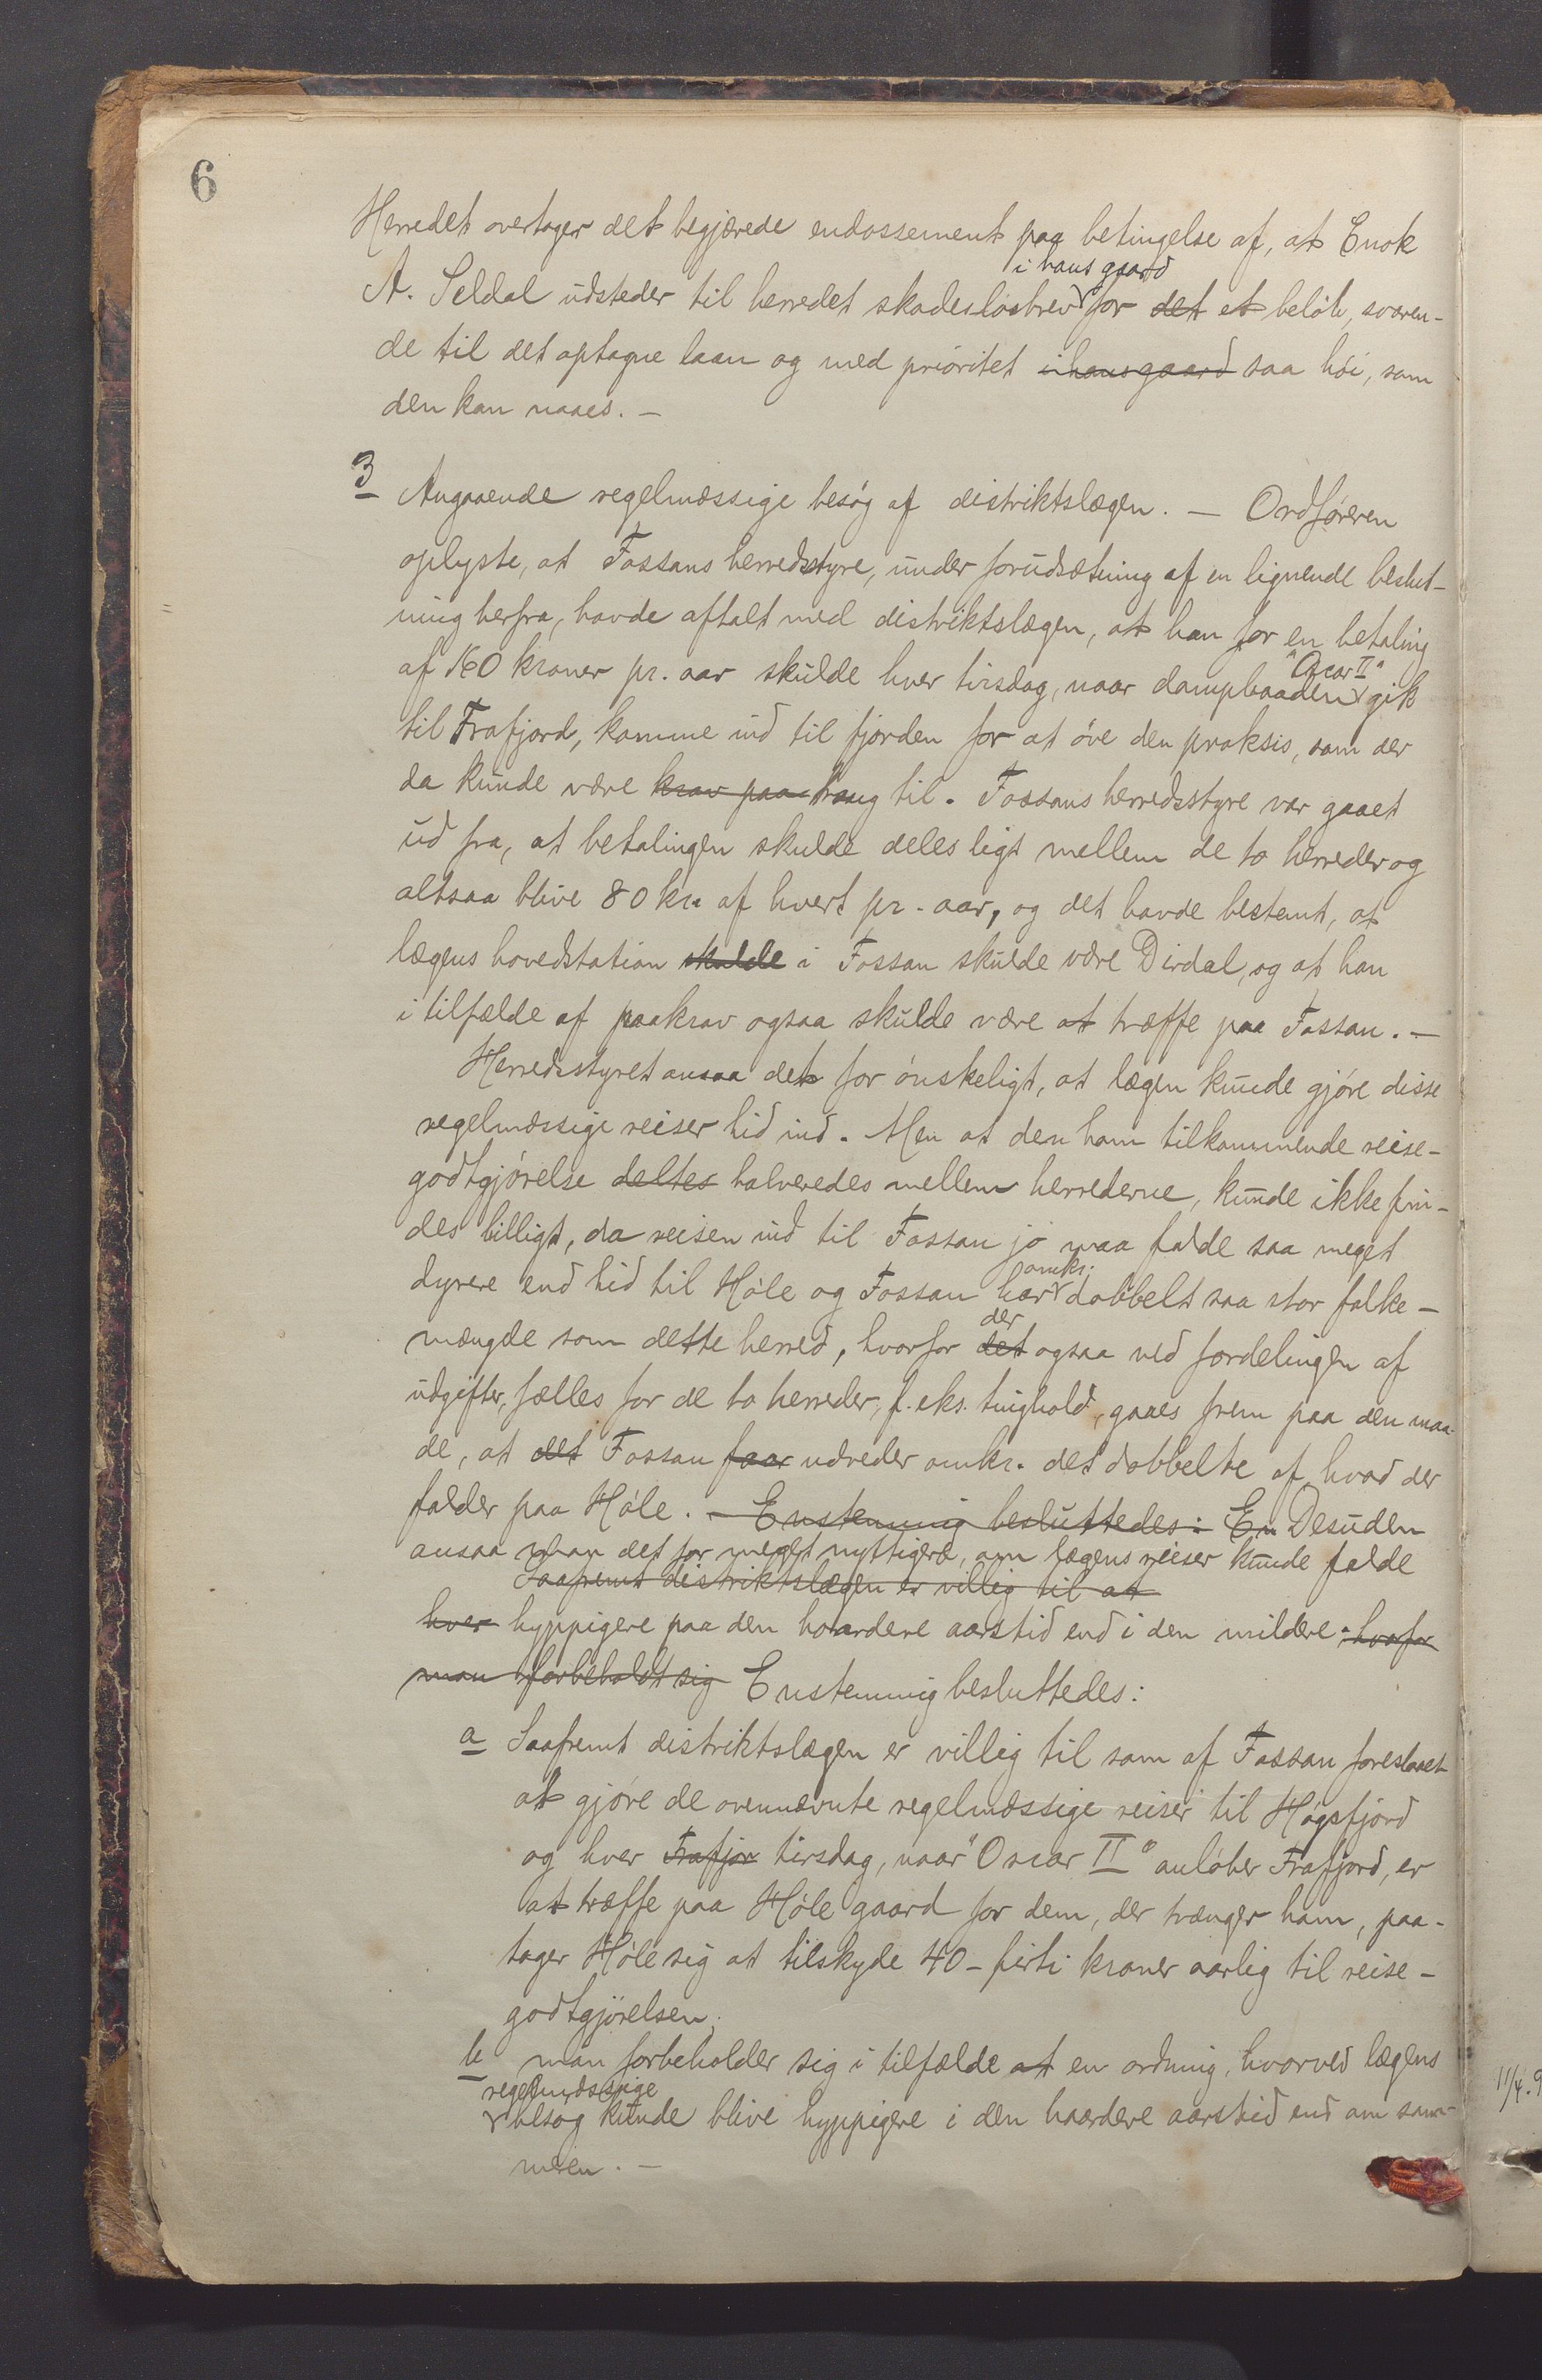 6
Herredet overtager det begjærede endossement paa betingelse af, at Enok
i hans gaard
A. Seldal udsteder til herredet skadesløsbrev for det et beløb, svaren-
de til det optagne laan og med prioritet i hans gaard saa høi, som
den kan naaes. —
3 Angaaende regelmæssige besøg af distriktslægen. — Ordføreren
oplyste, at Fossans herredsstyre, under forudsætning af en lignende beslut-
ning herfra, havde aftalt med distriktslægen, at han for en betaling
"Oscar II"
af 160 kroner pr. aar skulde hver tirsdag, naar dampbaaden gik
til Frafjord, komme ind til fjorden for at øve den praksis, som der
da kunde være krav paa trang til. Fossans herredsstyre var gaaet
ud fra, at betalingen skulde deles ligt mellem de to herreder og
altsaa blive 80 kr. af hvert pr. aar, og det havde bestemt, at
lægens hovedstation skulde i Fossan skulde være Dirdal, og at han
i tilfælde af paakrav ogsaa skulde være at træffe paa Fossan. —
Herredsstyret ansaa det for ønskeligt, at lægen kunde gjøre disse
regelmæssige reiser hid ind. Men at den ham tilkommende reise-
godtgjørelse deltes halveredes mellem herrederne, kunde ikke fin-
des billigt, da reisen ind til Fossan jo maa falde saa meget
omkr.
dyrere end hid til Høle og Fossan har dobbelt saa stor folke-
der
mængde som dette herred, hvorfor det ogsaa ved fordelingen af
udgifter, fælles for de to herreder, f. eks. tinghold, gaaes frem paa den maa-
de, at det Fossan faar udreder omkr. det dobbelte af hvad der
falder paa Høle. — Enstemmig besluttedes: En Desuden
ansaa man det for meget nyttigere, om lægens reiser kunde falde
Saafremt distriktslægen er villig til at
hver hyppigere paa den haardere aarstid end i den mildere, hvorfor
man forbeholdt sig Enstemmig besluttedes:
a Saafremt distriktslægen er villig til som af Fossan foreslaaet
at gjøre de ovennævnte regelmæssige reiser til Høgsfjord
og hver Frafjor tirsdag, naar "Oscar II" anløber Frafjord, er
at træffe paa Høle gaard for dem, der trænger ham, paa-
tager Høle sig at tilskyde 40 - firti kroner aarlig til reise-
godtgjørelsen.
b man forbeholder sig i tilfælde at en ordning, hvorved lægens
regelmæssige
besøg kunde blive hyppigere i den haardere aarstid end om som-
meren. —
11/4. 9